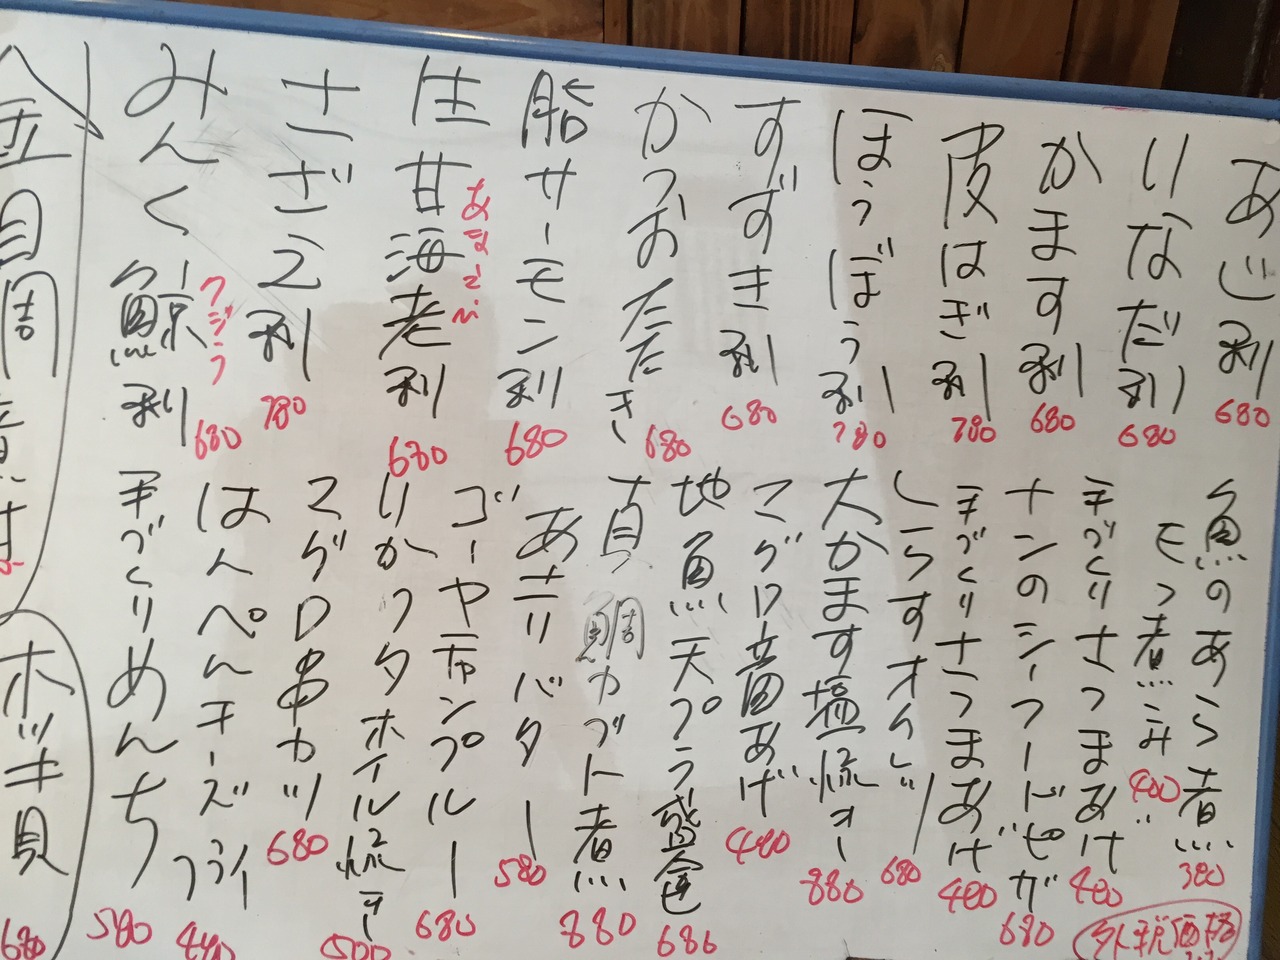 あじ刺
680
いなだ刺
680
かます刺
680
皮はぎ刺
780
ほうぼう刺
780
すずき刺
680
かつおたたき
680
船サーモン刺
680
甘海老刺
あまえび
680
さざえ刺
780
みんく鯨刺
クジラ
680
魚のあら煮
380
モツ煮こみ
400
手づくりさつまあげ
400
ナンのシーフードピザ
680
手づくりさつまあげ
400
しらすオムレツ
680
大かます塩焼き
880
マグロ竜田あげ
480
地魚天プラ盛合
680
真鯛カブト煮
880
あさりバター
580
ゴーヤチャンプルー
680
いかワタホイル焼き
500
マグロ串カツ
680
はんぺんチーズフライ
480
手づくりめんち
580
金目鯛煮付
ホッキ貝
680
外税価格